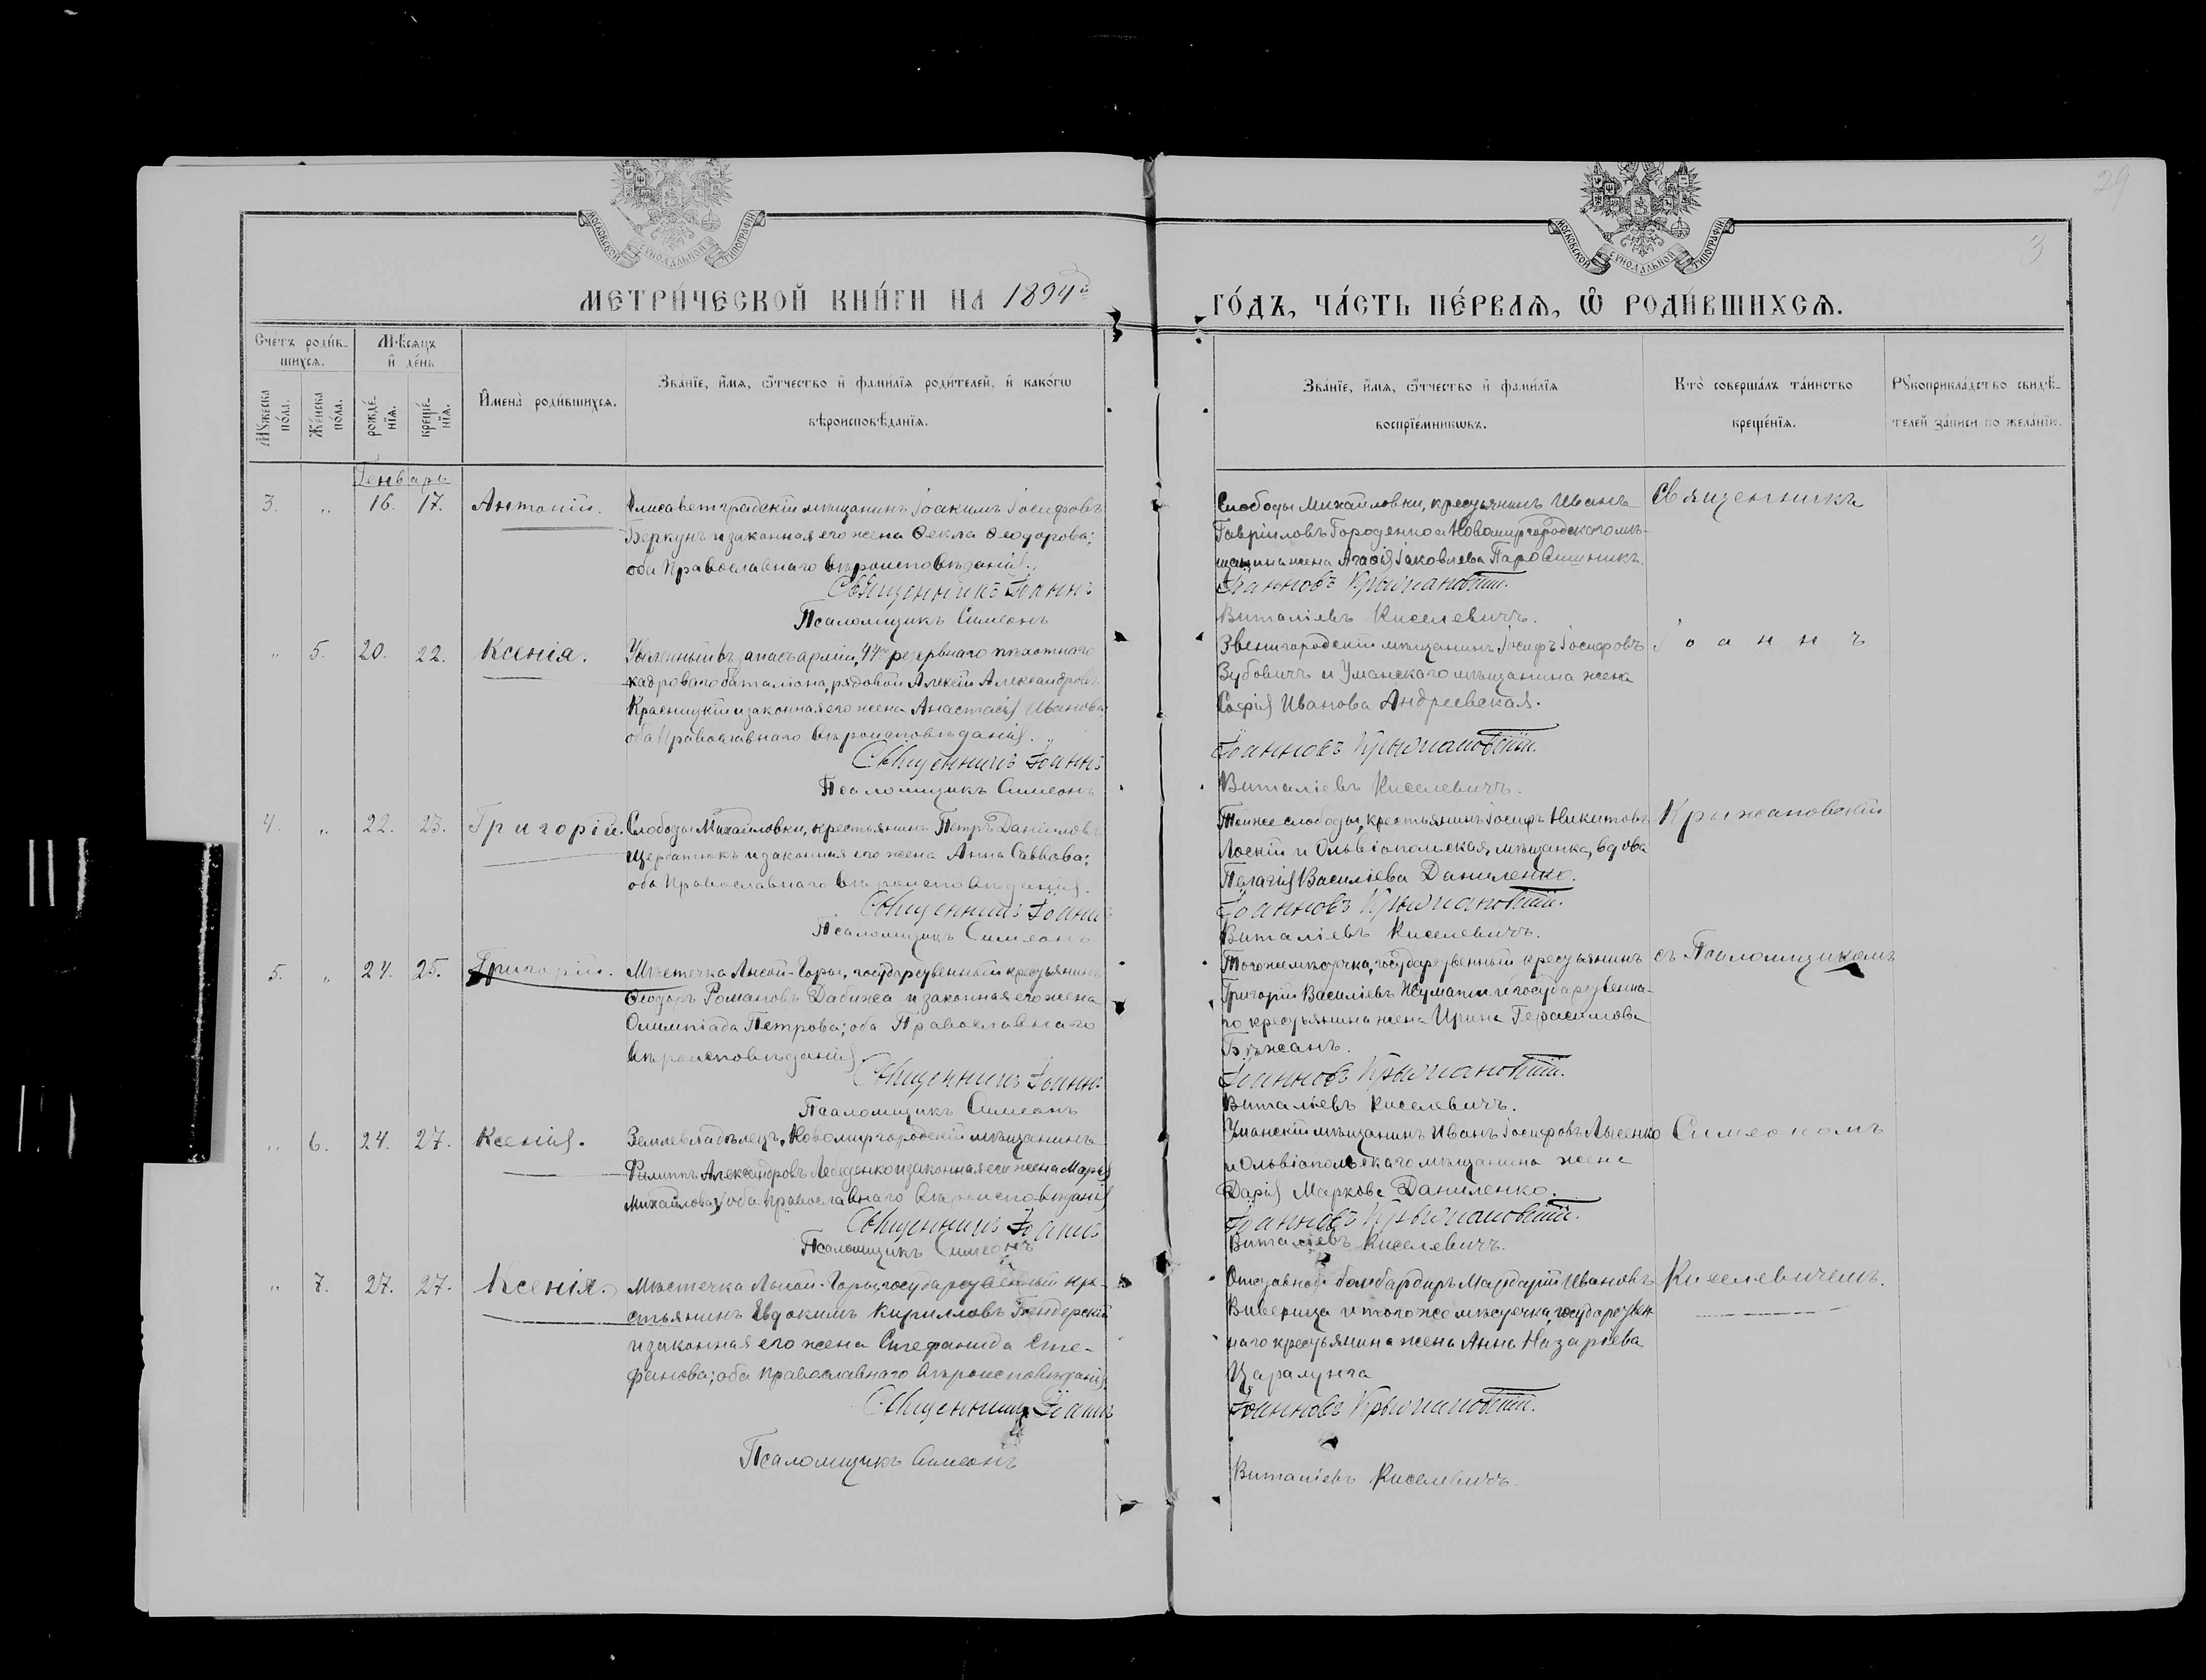 29
3
МОСКОВСКОЙ СѴНОДАЛЬНОЙ ТИПОГРАФІИ
МОСКОВСКОЙ СѴНОДАЛЬНОЙ ТИПОГРАФІИ
МЕТРИ́ЧЕСКОЙ КНИ́ГИ НА 1894й ГО́ДЪ, ЧА́СТЬ ПЕ́РВАѦ, Ѽ РОДИ́ВШИХСѦ.
Сче́тъ роди́в-
шихсѧ.
Мѣ́сѧцъ
и҆ де́нь
Мꙋ́жеска по́ла.
Же́нска по́ла.
рожде́-
нїѧ.
креще́-
нїѧ.
И҆мена̀ роди́вшихсѧ.
Зва́нїе, и҆́мѧ, ѻ҆́тчество и҆ фами́лїѧ роди́телей, и҆ како́гѡ
вѣроисповѣ́данїѧ.
Зва́нїе, и҆́мѧ, ѻ҆́тчество и҆ фами́лїѧ
воспрїе́мникѡвъ.
Кто̀ соверша́лъ та́инство
креще́нїѧ.
Рꙋкоприкла́дство свидѣ́-
телей за́писи по жела́нїю.
Генварь
3. „ 16. 17. Антоній.
Елисаветградскій мѣщанинъ Іоакимъ Іосифовъ
Беркунъ и законная его жена Ѳекла Ѳеодорова;
оба Православнаго вѣроисповѣданія.
Священникъ Іоаннъ
Псаломщикъ Симеонъ
Слободы Михайловки, крестьянинъ Иванъ
Гавріиловъ Городенко и Новомиргородского мѣ-
щанина жена Агаѳія Іаковлева
Іоанновъ Крыжановскій.
Виталіевъ Киселевичъ.
Священникъ
„ 5. 20. 22. Ксенія.
Уволенный въ запасъ арміи, 44го резервнаго пѣхотнаго
кадроваго баталіона, рядовой Алексій Александровъ
Красницкій и законная его жена Анастасія Иванова
оба Православнаго вѣроисповѣданія.
Священникъ Іоаннъ
Псаломщикъ Симеонъ
Звенигородскій мѣщанинъ Іосифъ Іосифовъ
Зубовичъ и Уманскаго мѣщанина жена
Софія Иванова Андреевская.
Іоанновъ Крыжановскій.
Виталіевъ Киселевичъ.
Іоаннъ
4. „ 22. 23. Григорій.
Слободы Михайловки, крестьянинъ Петръ Даніиловъ
Щербатюкъ и законная его жена Анна Саввова;
оба Православнаго вѣроисповѣданія.
Священникъ Іоаннъ
Псаломщикъ Симеонъ
Той же слободы, крестьянинъ Іосифъ Никитовъ
Лоскій и Ольвіопольская, мѣщанка, вдова
Пелагія Василіева Даниленко.
Іоанновъ Крыжановскій.
Виталіевъ Киселевичъ.
Крыжановскій
5. „ 24. 25. Григорій.
Мѣстечка Лысой-Горы, государственный крестьянинъ
Ѳеодоръ Романовъ Дабижа и законная его жена
Олимпіада Петрова; оба Православнаго
вѣроисповѣданія.
Священникъ Іоаннъ
Псаломщикъ Симеонъ
Того же мѣстечка, государственный крестьянинъ
Григорій Василіевъ и государственна-
го крестьянина жена Ирина Герасимова
Бѣжанъ.
Іоанновъ Крыжановскій.
Виталіевъ Киселевичъ.
съ Псаломщикомъ
„ 6. 24. 27. Ксенія.
Землевладѣлецъ, Новомиргородскій мѣщанинъ
Филиппъ Александровъ Лебеденко и законная его жена Марія
Михайлова; оба Православнаго вѣроисповѣданія
Священникъ Іоаннъ
Псаломщикъ Симеонъ
Уманскій мѣщанинъ Иванъ Іосифовъ Лысенко
и Ольвіопольскаго мѣщанина жена
Дарія Маркова Даниленко.
Іоанновъ Крыжановскій.
Виталіевъ Киселевичъ.
Симеономъ
„ 7. 27. 27. Ксенія.
Мѣстечка Лысой-Горы, государственный кре-
стьянинъ Евдокимъ Кирилловъ Бендерскій
и законная его жена Стефанида Сте-
фанова; оба Православнаго вѣроисповѣданія.
Священникъ Іоаннъ
Псаломщикъ Симеонъ
Отставной бомбардиръ Мардарій Ивановъ
Виверица и того же мѣстечка, государствен
наго крестьянина жена Анна Назаріева
Царалунга
Іоанновъ Крыжановскій.
Виталіевъ Киселевичъ.
Киселевичемъ.